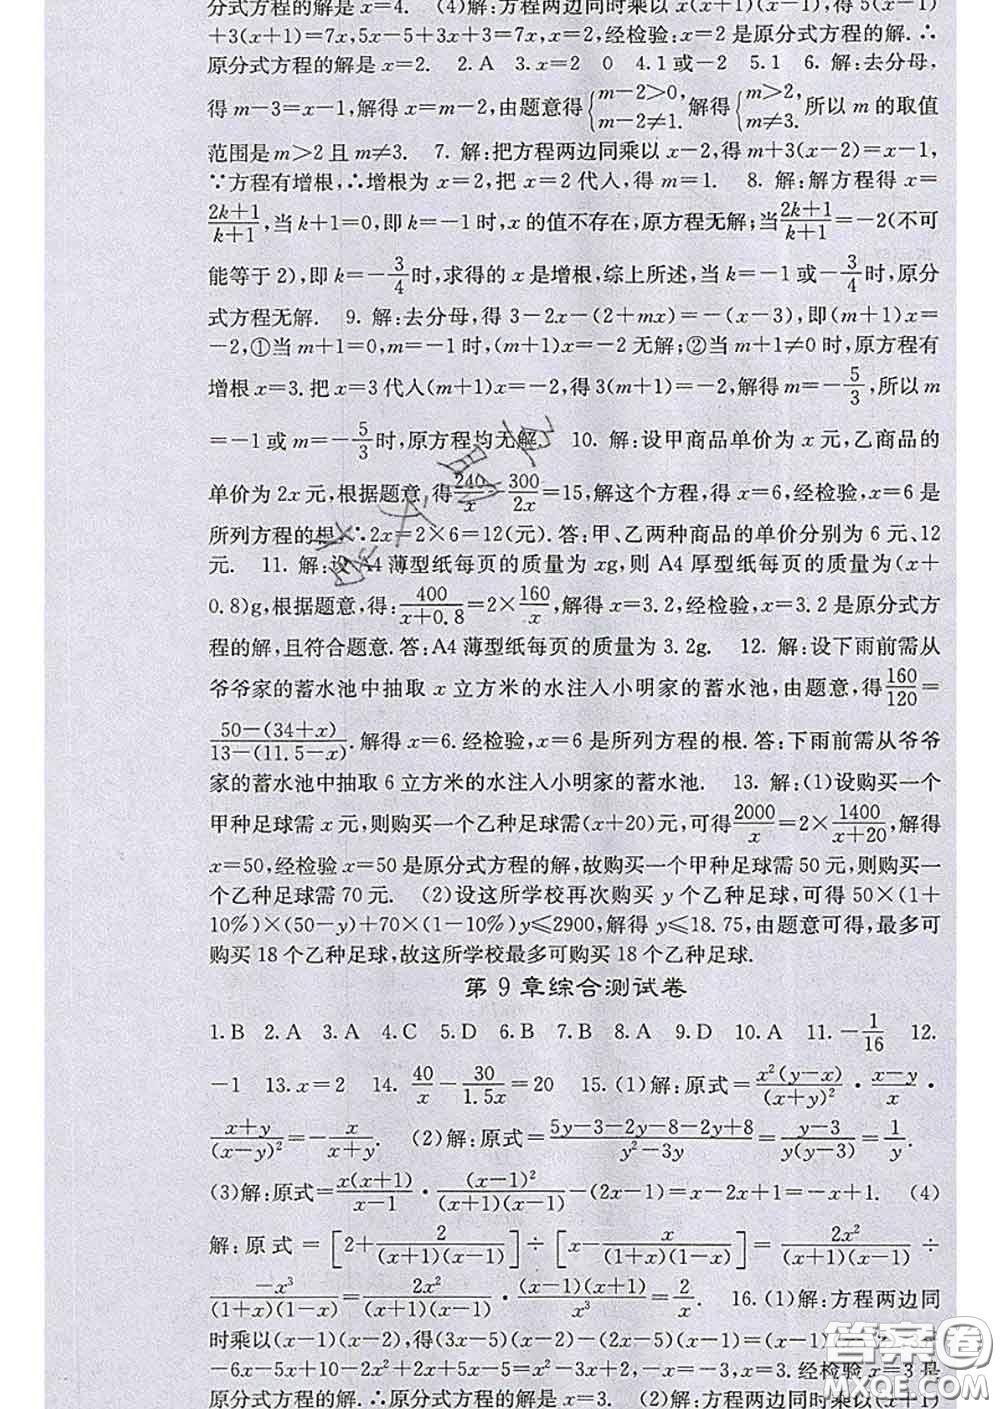 分式方程的解是 x=4. (4)解:方程两边同时乘以 x(x+1)(x-1),得 5(x-1)
+3(x+1)=7x,5x-5+3x+3=7x,x=2,经检验:x=2 是原分式方程的解.∴
原分式方程的解是 x=2. 2. A 3. x=2 0 4. 1 或-2 5. 1 6. 解:去分母,
得 m-3=x-1,解得 x=m-2,由题意得{m-2>0, m-2≠1. 解得{m>2, m≠3. 所以 m 的取值
范围是 m>2 且 m≠3. 7. 解:把方程两边同乘以 x-2,得 m+3(x-2)=x-1,
∵方程有增根,∴增根为 x=2,把 x=2 代人,得 m=1. 8. 解:解方程得 x=
(2k+1)/(k+1),当 k+1=0,即 k=-1 时,x 的值不存在,原方程无解;当(2k+1)/(k+1)=-2(不可
能等于 2),即 k=-3/4时,求得的 x 是增根,综上所述,当 k=-1 或-3/4时,原分
式方程无解. 9. 解:去分母,得 3-2x-(2+mx)=-(x-3),即(m+1)x=
-2,①当 m+1=0,m=-1 时,(m+1)x=-2 无解;②当 m+1≠0 时,原方程有
增根 x=3.把 x=3 代人(m+1)x=-2,得 3(m+1)=-2,解得 m=-5/3,所以 m
=-1 或 m=-5/3时,原方程均无解. 10. 解:设甲商品单价为 x 元,乙商品的
单价为 2x 元,根据题意,得240/x-300/2x=15,解这个方程,得 x=6,经检验,x=6 是
所列方程的根.∴2x=2×6=12(元).答:甲、乙两种商品的单价分别为 6 元、12
元. 11. 解:设 A4 薄型纸每页的质量为 xg,则 A4 厚型纸每页的质量为(x+
0.8)g,根据题意,得:400/(x+0.8)=2×160/x,解得:x=3.2,经检验,x=3.2 是原分式方
程的解,且符合题意.答:A4 薄型纸每页的质量为 3.2g. 12. 解:设下雨前需从
爷爷家的蓄水池中抽取 x 立方米的水注人小明家的蓄水池,由题意,得160/120=
(50-(34+x))/(13-(11.5-x)).解得 x=6.经检验,x=6 是所列方程的根.答:下雨前需从爷爷
家的蓄水池中抽取 6 立方米的水注人小明家的蓄水池. 13. 解:(1)设购买一个
甲种足球需 x 元,则购买一个乙种足球需(x+20)元,可得2000/x=2×1400/(x+20),解得
x=50,经检验 x=50 是原分式方程的解,故购买一个甲种足球需 50 元,则购买一
个乙种足球需 70 元. (2)设这所学校再次购买 y 个乙种足球,可得 50×(1+
10%)×(50-y)+70×(1-10%)y≤2900,解得 y≤18.75,由题意可得,最多可
购买 18 个乙种足球,故这所学校最多可购买 18 个乙种足球.
第 9 章综合测试卷
1. B 2. A 3. A 4. C 5. D 6. B 7. B 8. A 9. D 10. A 11. -1/16 12.
-1 13. x=2 14. 40/x-30/1.5x=20 15. (1)解:原式=x²(y-x)/(x+y)²·(x-y)/x·
(x+y)/(x-y)²=-x/(x+y). (2)解:原式=(5y-3-2y-8-2y+8)/(y²-3y)=(y-3)/(y(y-3))=1/y.
(3)解:原式=x(x+1)/(x-1)·(x-1)²/((x+1)(x-1))-(2x-1)=x-2x+1=-x+1. (4)
解:原式=[2+2/((x+1)(x-1))]÷[x-x/((1+x)(1-x))]=2x²/((x+1)(x-1))÷
-x³/((1+x)(1-x))=2x²/((x+1)(x-1))·(x-1)(x+1)/x³=2/x. 16. (1)解:方程两边同
时乘以(x-1)(x-2),得(3x-5)(x-2)-(2x-5)(x-1)=(x-1)(x-2),3x²
-6x-5x+10-2x²+2x+5x-5=x²-3x+2,-x=-3,x=3.经检验 x=3 是
原分式方程的解.∴原分式方程的解是 x=3. (2)解:方程两边同时乘以(x+1)
答案圈
MXQE.COM